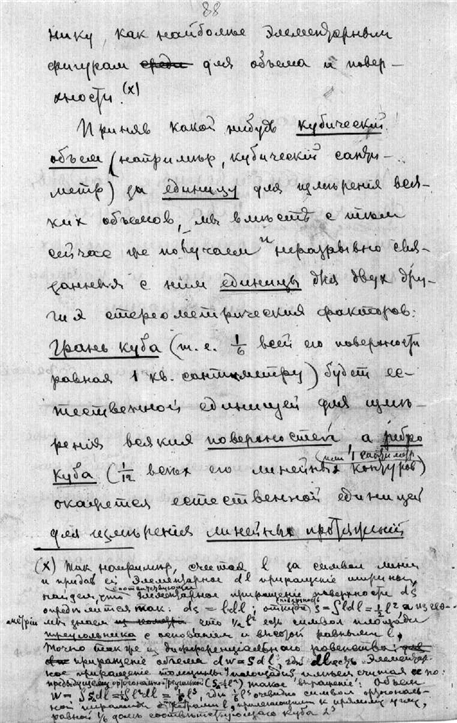 88
нику, как наиболѣе элементарным
фигурам среди для объема и повер-
хности. (x)
Приняв какой нибудь кубический
объем (например, кубический санти-
метр) за единицу для измѣрения вся-
ких объемов, мы вмѣстѣ с тѣм
сейчас же получаем и неразрывно свя-
занныя с ним единицы для двух дру-
гих стереометрических факторов:
Грань куба (т.е. 1/6 всей его поверхности
равная 1 кв. сантиметру) будет ес-
тественной единицей для измѣ-
рения всяких поверхностей, а ребро
или 1 сантиметр
куба (1/12 всех его линейных контуров)
окажется естественной единицей
для измѣрения линейных протяжений
(x) Так например, считая l за символ линии
и придав ей элементарное dl приращение ширины,
найдем, что элементарное приращение поверхности ds
опредѣлится так: ds = ldl; откуда S = ∫ldl = ½l² а из гео-
метрии мы знаем что ½l² есть символ площади
треугольника с основанием и высотой равными l,
Точно так же из дифференциального равенства
приращение объема dw = Sdl, где dl есть элементар-
ное приращение толщины